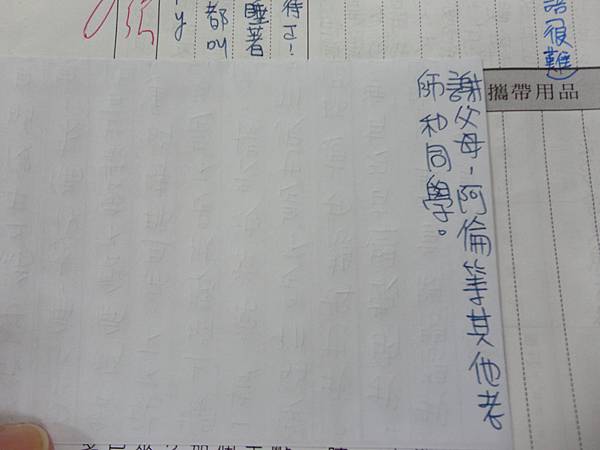 語很難
攜帶用品
謝父母,阿倫等其他老
師和同學。
待了!
睡著
都叫
y